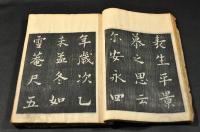 生平景
慕之思云
尓安永四
年歳次乙
未孟冬如
雪菴尺五